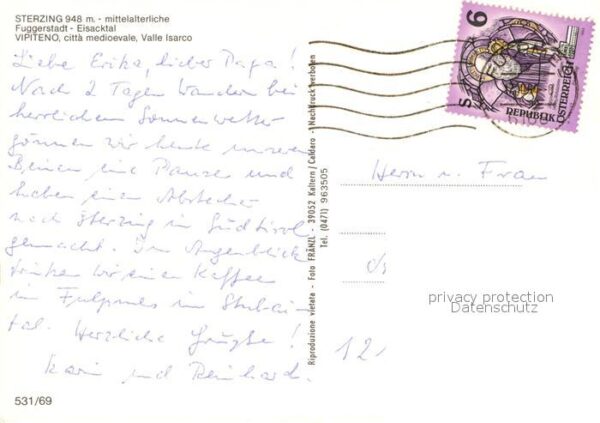 STERZING 948 m. - mittelalterliche
Fuggerstadt - Eisacktal
VIPITENO, città medioevale, Valle Isarco
Liebe Erika, lieber Papa!
Nach 2 Tagen Wandern bei
herrlichem Sonnenwetter
gönnen wir heute unseren
Beinen eine Pause und
haben einen Abstecher
nach Sterzing in Südtirol
gemacht. Im Augenblick
trinken wir einen Kaffee
in Fulpmes im Stubai-
tal. Herzliche Grüße!
Karin und Reinhard.
531/69
Riproduzione vietata - Foto FRÄNZL - 39052 Kaltern / Caldaro - Nachdruck verboten
Tel. (0471) 963505
S 6
REPUBLIK
ÖSTERREICH
Herrn u. Frau
privacy protection
Datenschutz
12